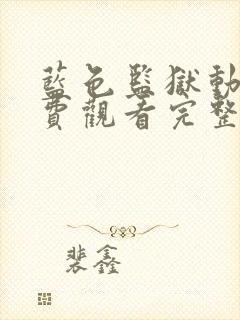 藍色監獄動
費觀看完整
裴鑫